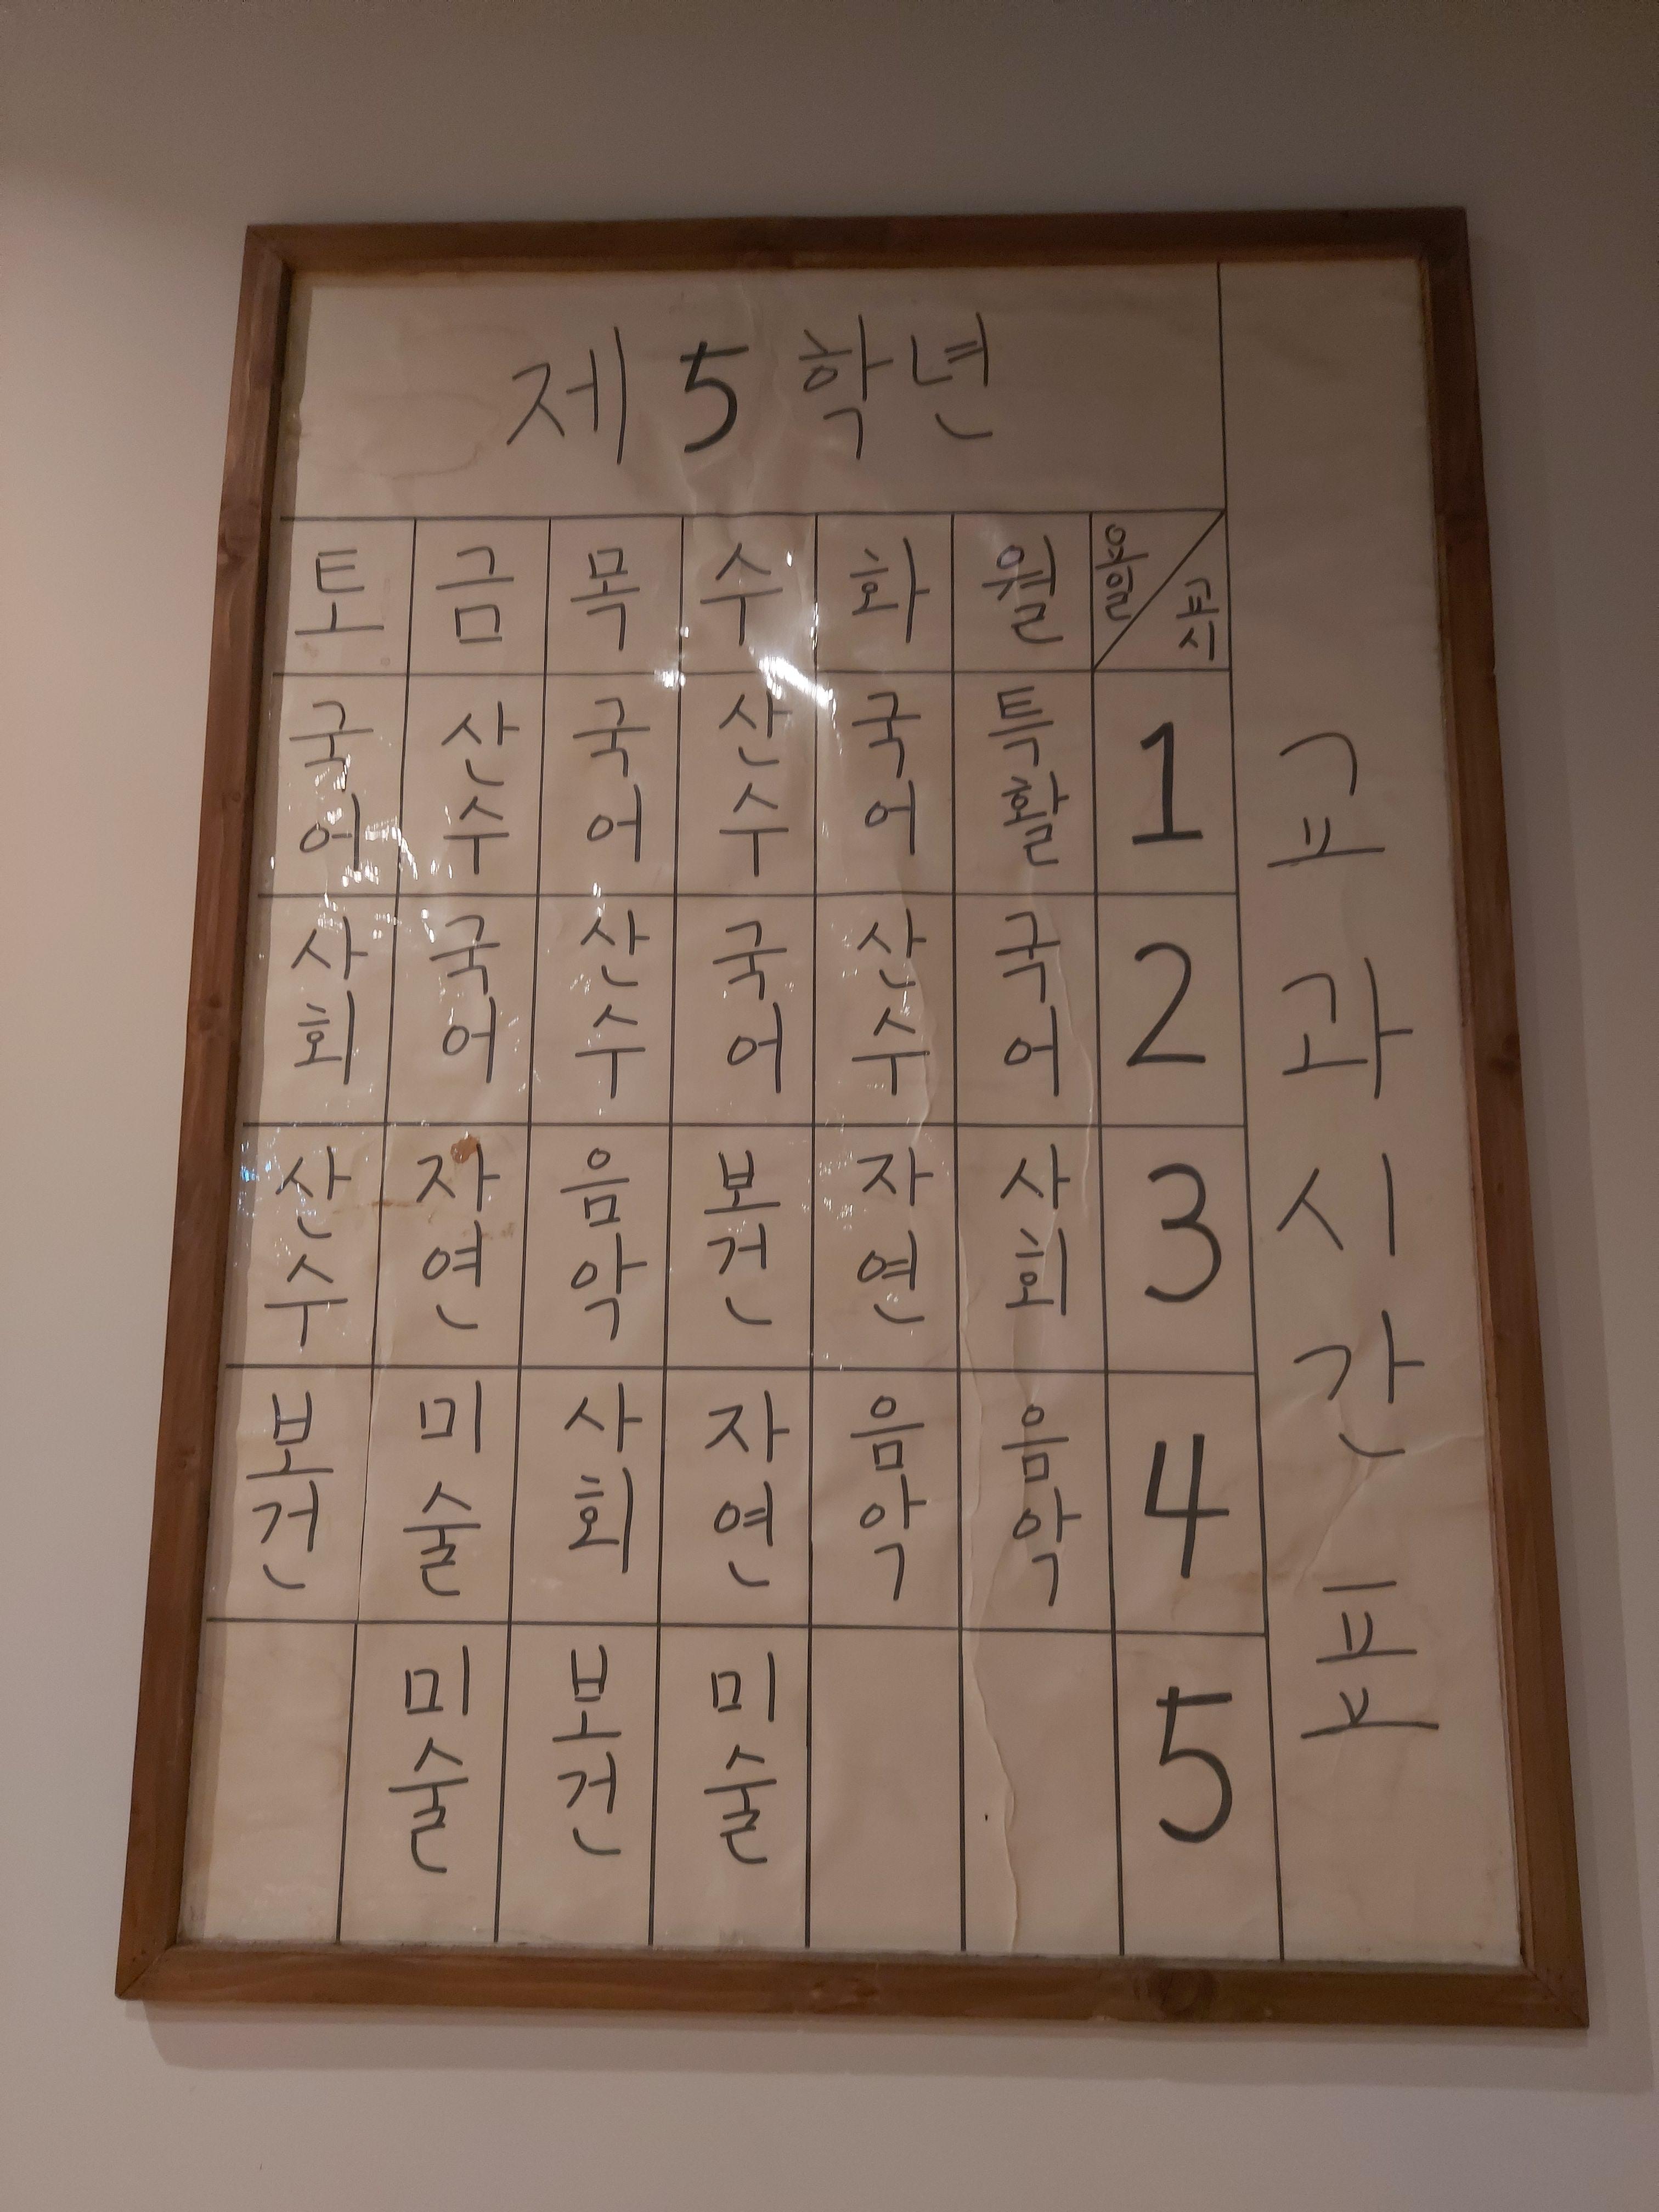 교과시간표
제5학년
토 금 목 수 화 월 요일 교시
국어 산수 국어 산수 국어 특활 1
사회 국어 산수 국어 산수 국어 2
산수 자연 음악 보건 자연 사회 3
보건 미술 사회 자연 음악 음악 4
미술 보건 미술 5